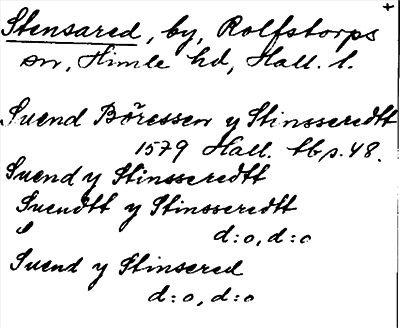 Stensared, by, Rolfstorps
sn, Himle hd, Hall. l.
Suend Böressen y Stinsseredtt
1579 Hall. tb s. 48.
Suend y Stinsseredtt
Suendtt y Stinsseredtt
d:o, d:o
Suend y Stinsered
d:o, d:o